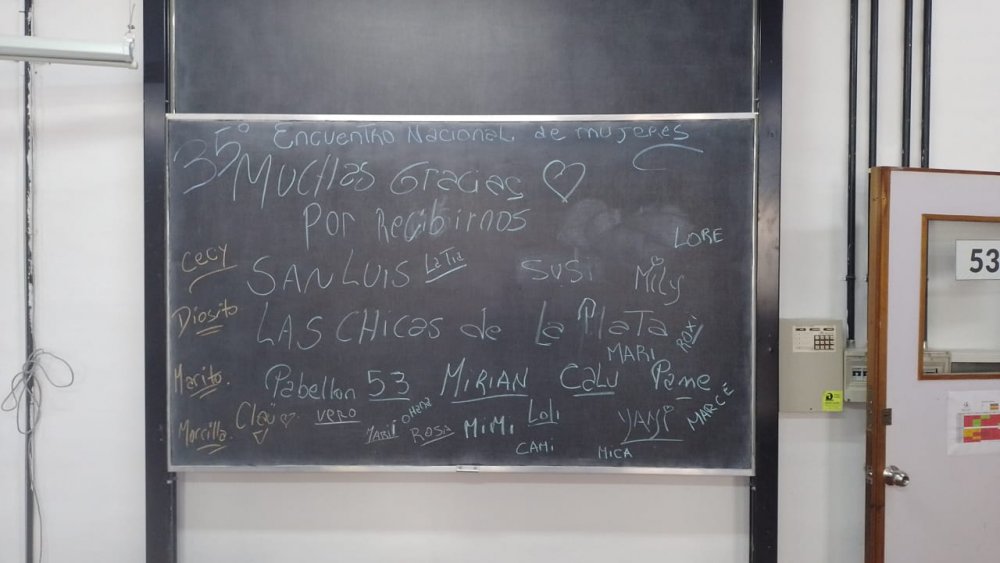 35° Encuentro Nacional de mujeres
Muchas Gracias
Por Recibirnos
LORE
cecy
SAN LUIS La Tia SUSi Mily
Diosito
LAS CHicas de La PlaTa
MARI ROXi
Marito.
Pabellon 53 MiRiAN CaLU Pame
MARCE
Morcilla. Clau VERO ROSA MiMi Loli YANi
CAMi MICA
53